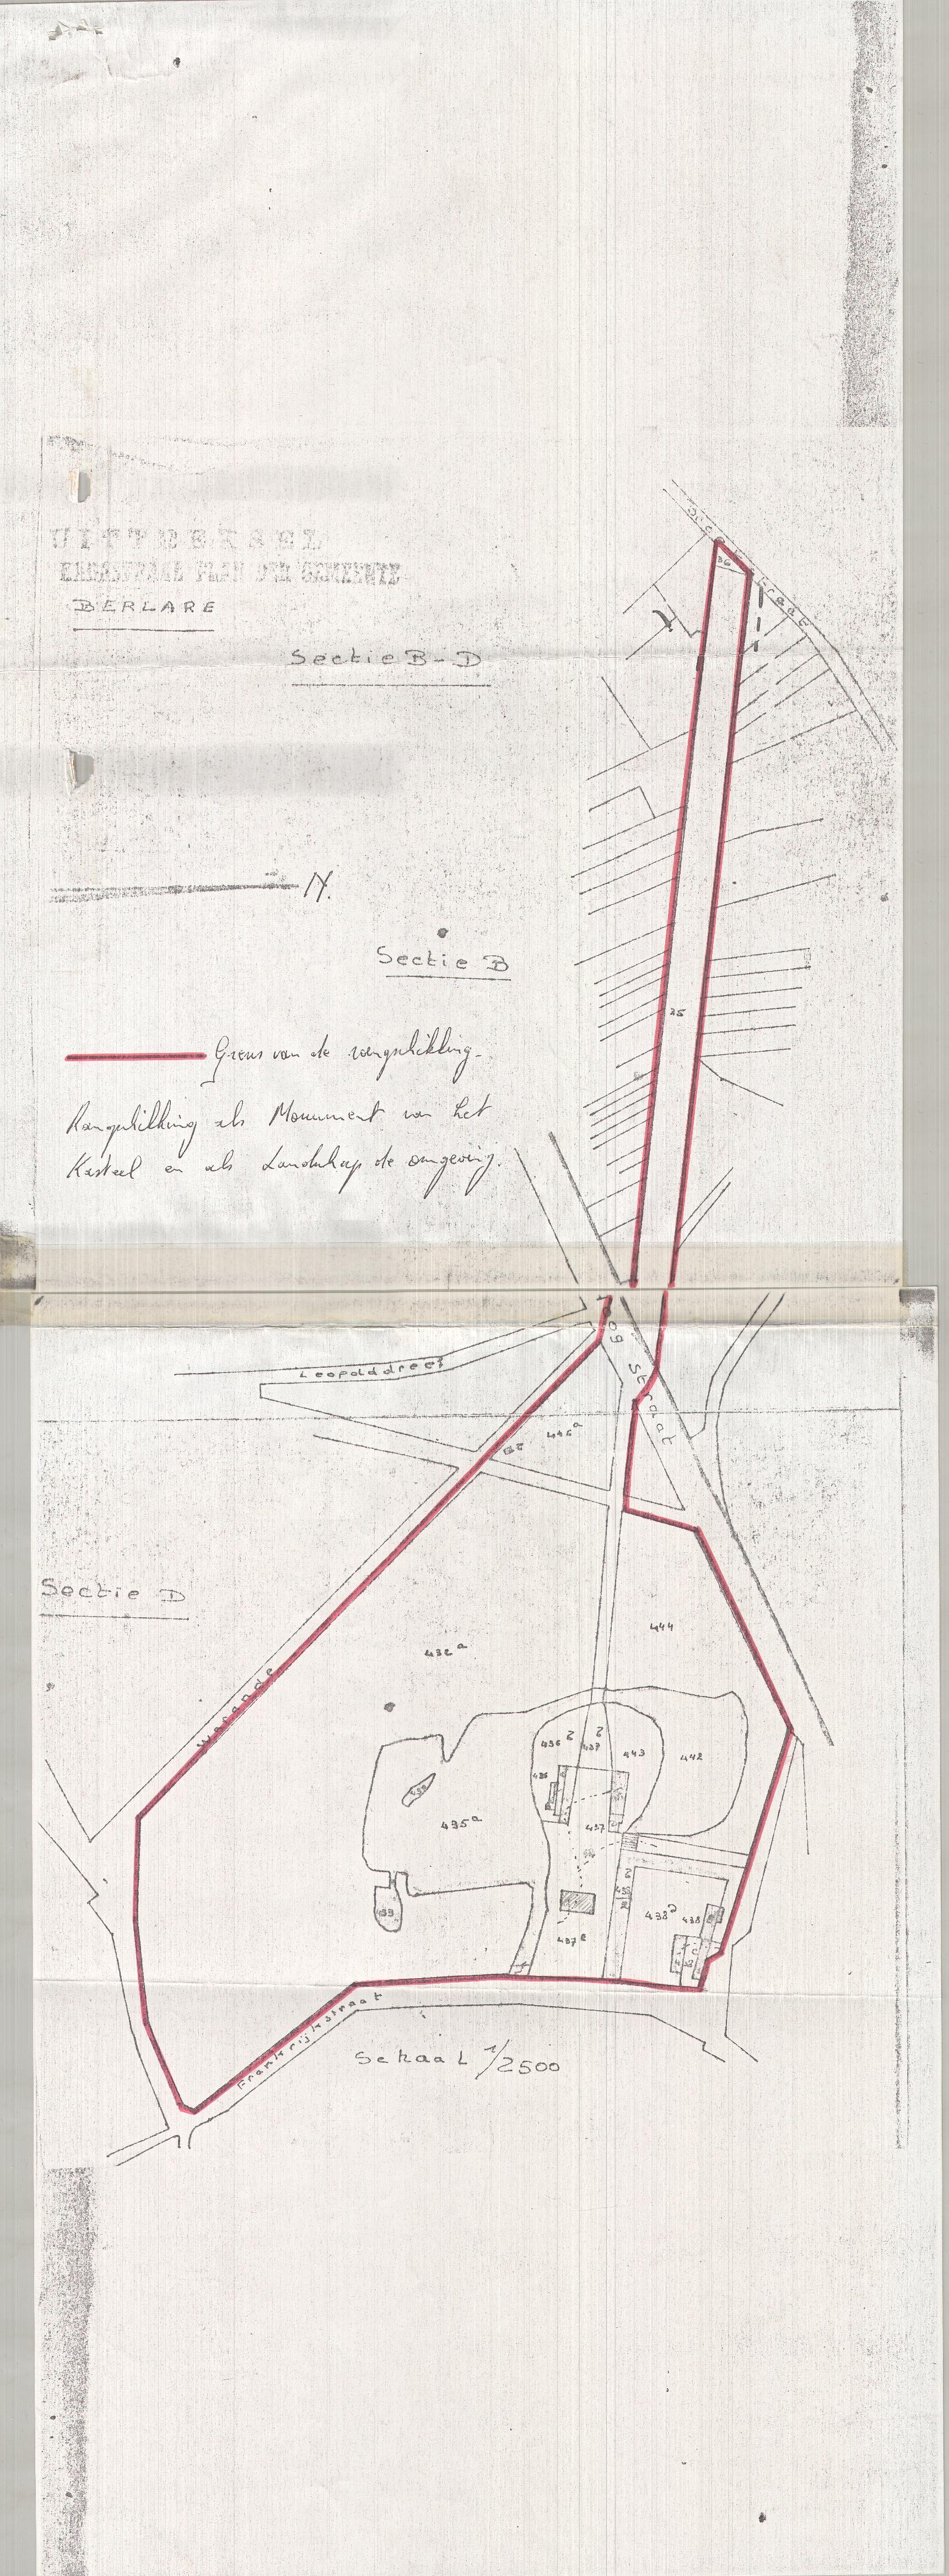 UITTREKSEL
KADASTRAAL PLAN DER GEMEENTE
BERLARE
Sectie B-D
straat
36
N.
Sectie B
25
Grens van de rangschikking.
Rangschikking als Monument van het
Kasteel en als Landschap de omgeving.
Leopolddreef
Straat
Sectie D
432a
444
Warande
436
437
443
442
435a
437
438
437e
Frankrijkstraat
Schaal 1/2500